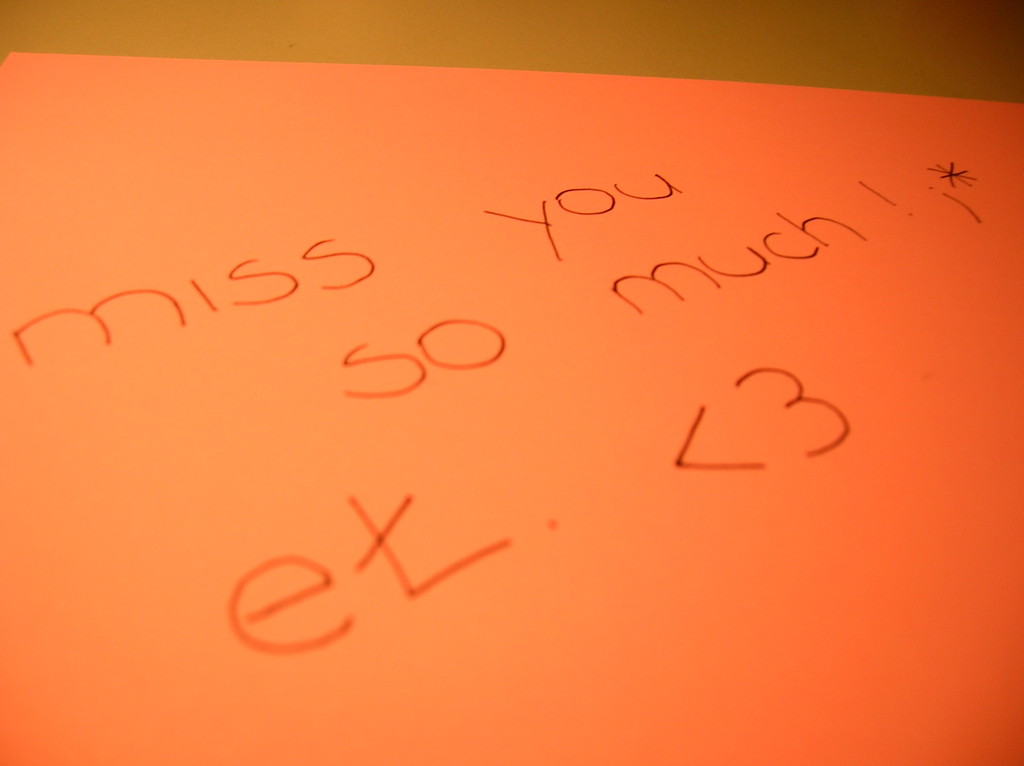 miss you
so much! ;*
ex. <3